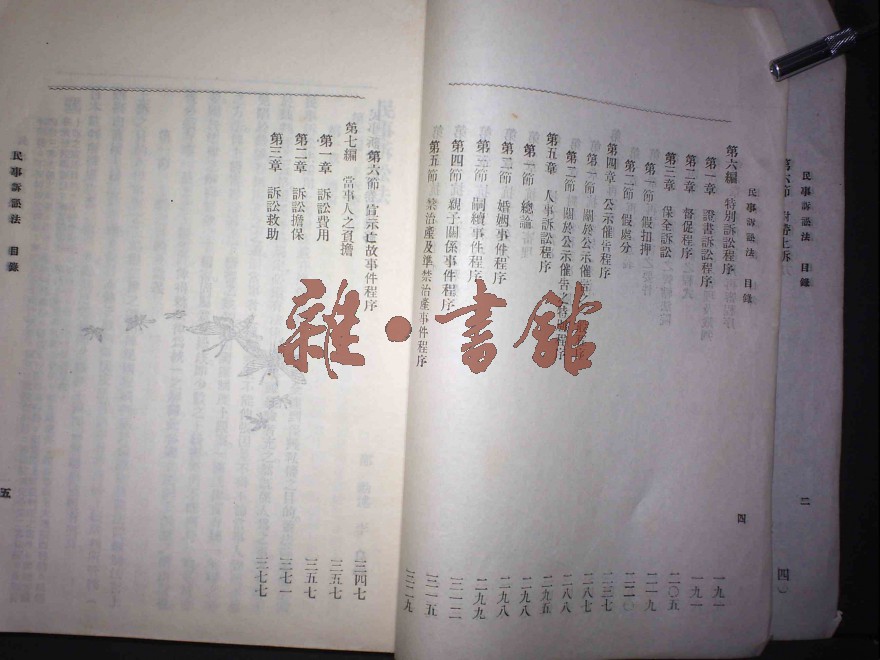 民事訴訟法 目錄
二
民事訴訟法 目錄
四
第六編 特別訴訟程序 一九一
第一章 證書訴訟程序 一九一
第二章 督促程序 二〇五
第三章 保全訴訟 二一九
第一節 假扣押
第二節 假處分
第四章 公示催告程序
第一節 關於公示催告
第二節 關於公示催告之特別程序 二八八
第五章 人事訴訟程序 二九五
第一節 總論 二九八
第二節 婚姻事件程序 二九八
第三節 嗣續事件程序 二九九
第四節 親子關係事件程序 三一二
第五節 禁治產及準禁治產事件程序 三一五
三二九
第六節 宣示亡故事件程序 三四七
第七編 當事人之負擔 三五七
第一章 訴訟費用 三五七
第二章 訴訟擔保 三七一
第三章 訴訟救助 三七七
民事訴訟法 目錄
五
雜·書館